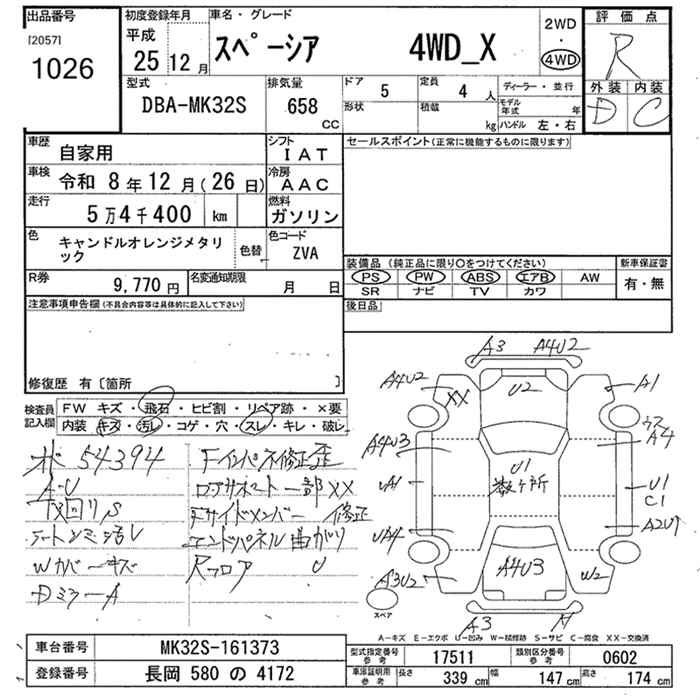 出品番号
[2057]
1026
初度登録年月
平成
25 12月
車名・グレード
スペーシア 4WD_X
2WD
・
4WD
評価点
R
外装 内装
D C
型式
DBA-MK32S
排気量
658
CC
ドア
5
形状
定員
4 人
積載
kg
ディーラー・並行
モデル年式 年
ハンドル 左・右
車歴
自家用
シフト
IAT
車検
令和 8年12月(26日)
冷房
AAC
走行
5万4千400 km
燃料
ガソリン
色
キャンドルオレンジメタリ
ック
色替
色コード
ZVA
R券
9,770円
名変通知期限
月 日
セールスポイント(正常に機能するものに限ります)
装備品(純正品に限り○をつけてください)
PS PW ABS エアB AW
SR ナビ TV カワ
新車保証書
有・無
後日品
注意事項申告欄(不具合内容等は具体的に記入して下さい)
修復歴 有〔箇所 〕
検査員
記入欄
FW キズ・飛石・ヒビ割・リペア跡・×要
内装 キズ・汚レ・コゲ・穴・スレ・キレ・破レ
54394
A-U
下廻りS
シートシミ・汚レ
Wカバーキズ
DミラーA
Fインパネ修正歪
コアサポート一部XX
Fサイドメンバー 修正
エンドパネル曲がり
Rフロア U
A3 A4U2
A4U2 XX U2 A1
A4U3 A4
UA1 U1 数ヶ所 U1
C1
UA4 A2U1
A3U2 A4U3 W2
スペア
A3
A-キズ E-エクボ U-凹み W-補修跡 S-サビ C-腐食 XX-交換済
車台番号 MK32S-161373
登録番号 長岡 580 の 4172
型式指定番号
参考
17511
類別区分番号
参考
0602
車庫証明用
参考
長さ 339 cm
幅 147 cm
高さ 174 cm